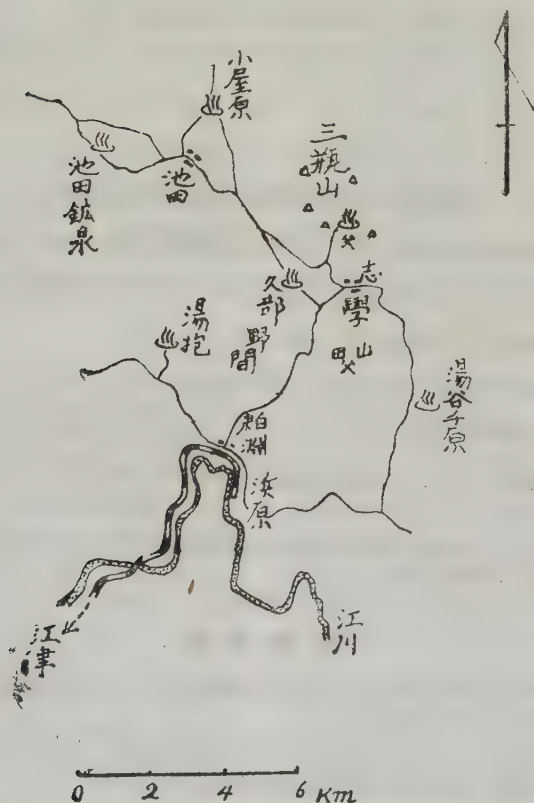 小屋原
三瓶山
池田鉱泉
池田
志學
久部
野間
湯抱
湯谷千原
粕淵
浜原
江川
江津
0 2 4 6 Km